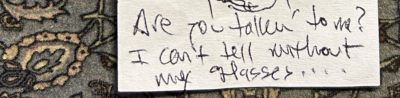 Are you talken' to me?
I can't tell without
my glasses....